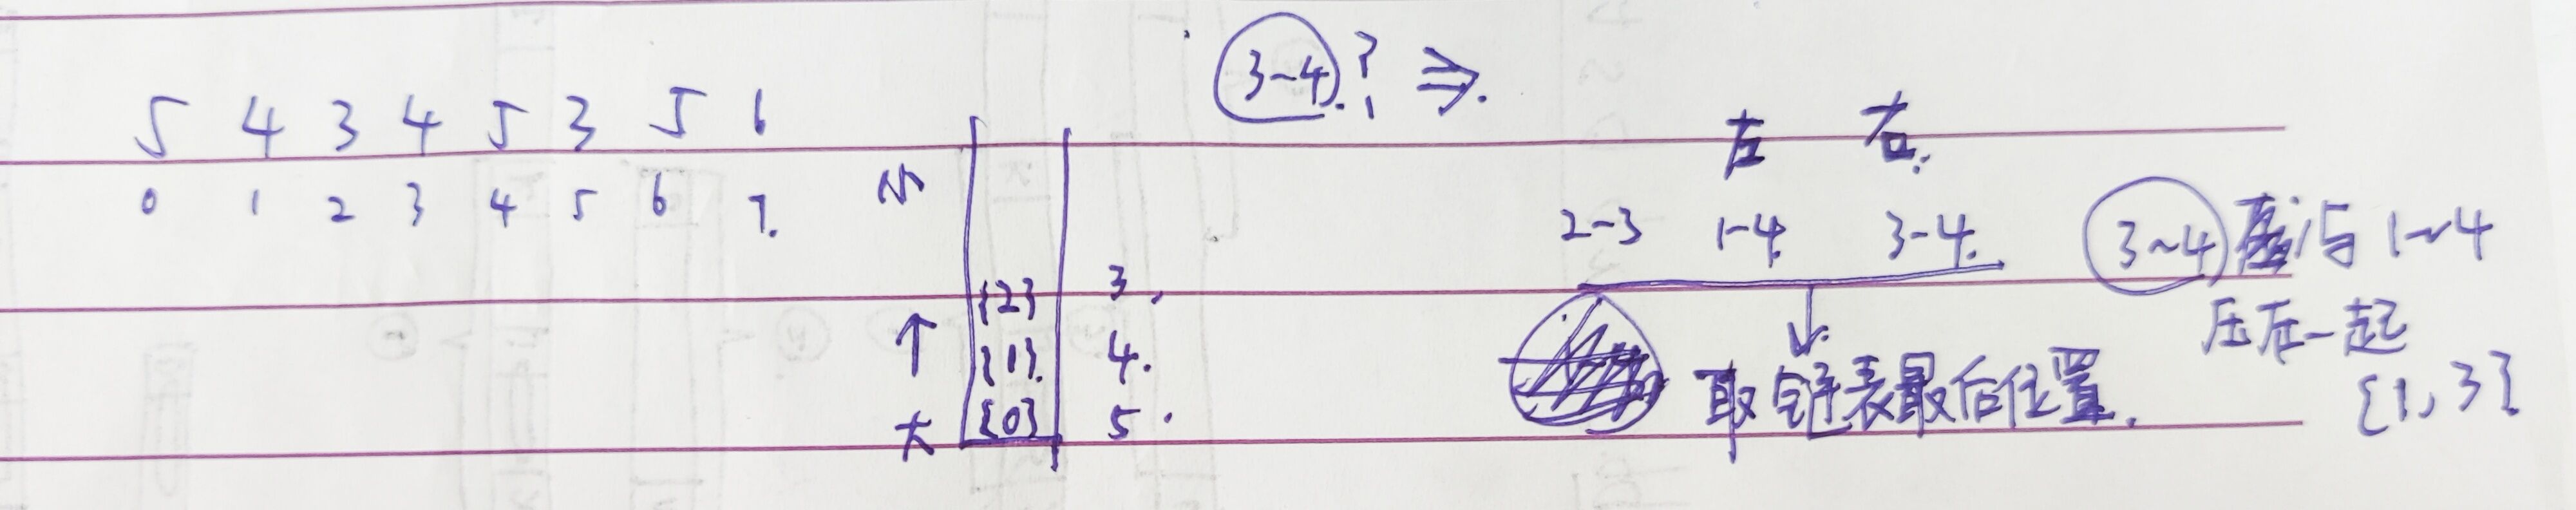 5 4 3 4 5 3 5 6
0 1 2 3 4 5 6 7.
小
↑
大
{2} 3.
{1} 4.
{0} 5.
3~4 ? ⇒.
左 右.
2-3 1-4. 3-4.
↓
取链表最后位置.
3~4 直接与 1~4
压在一起
{1,3}